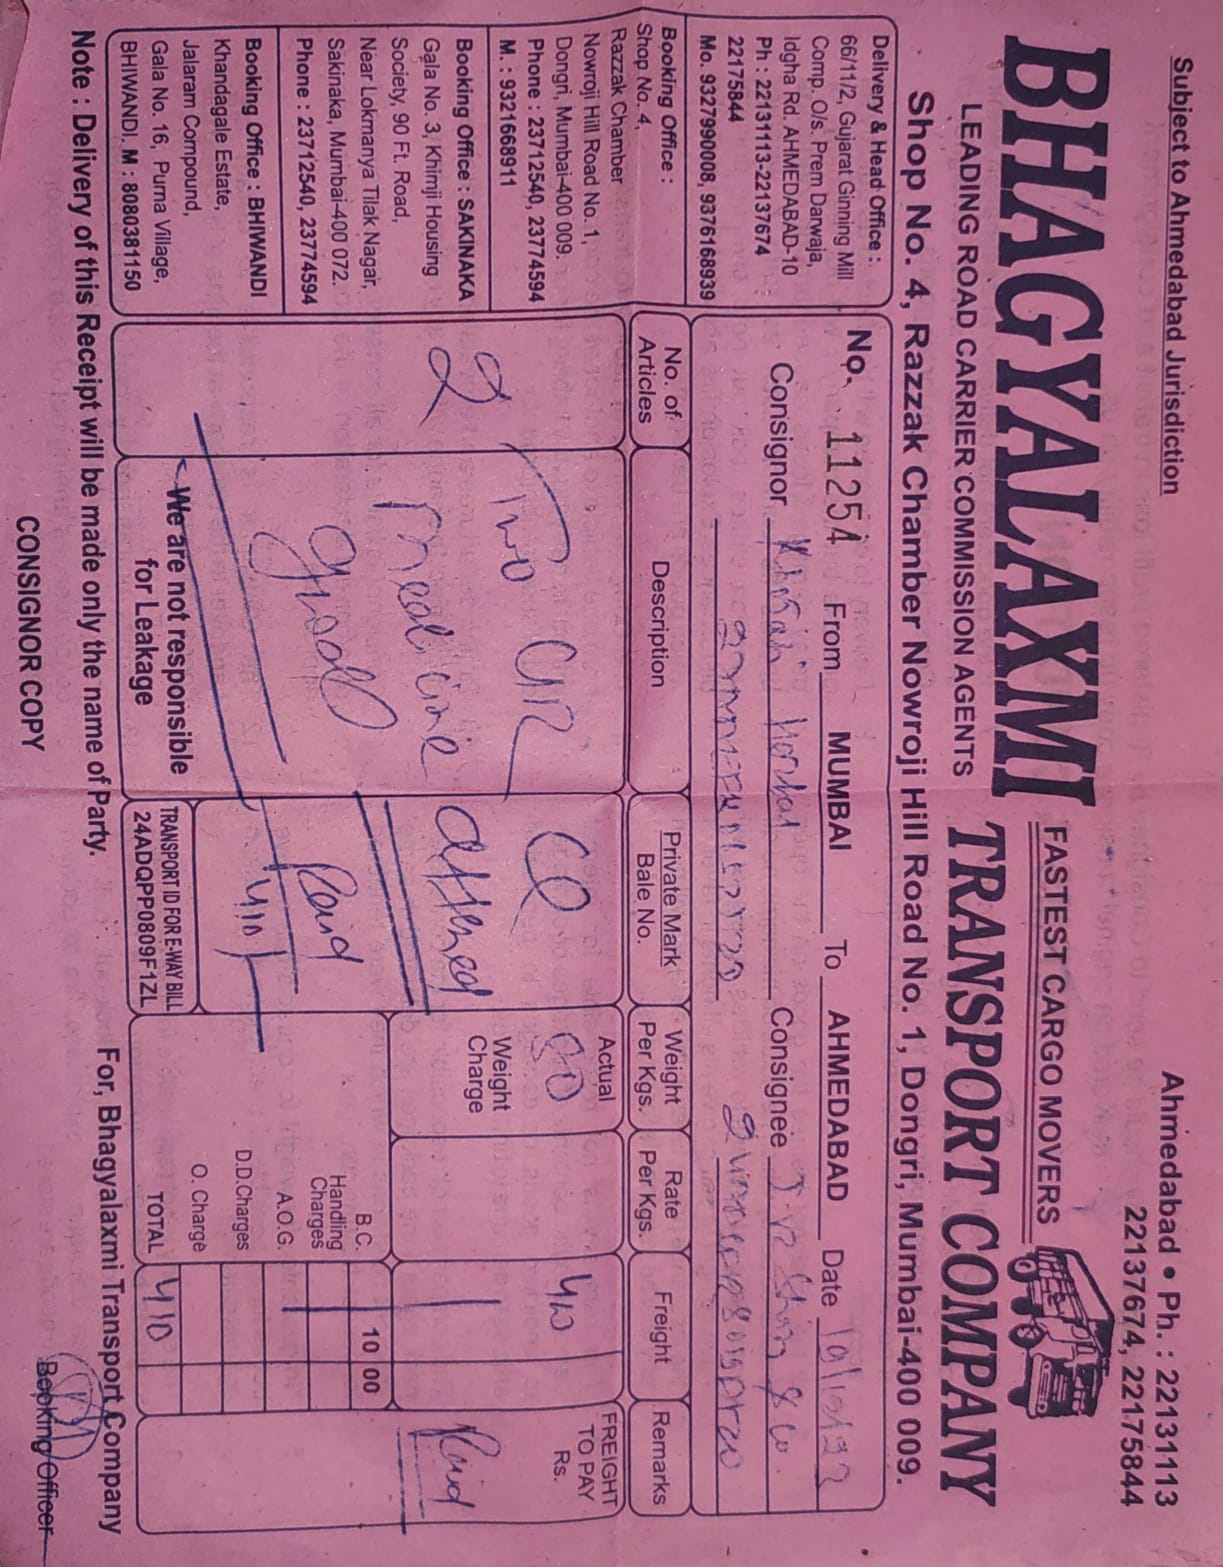 Subject to Ahmedabad Jurisdiction
Ahmedabad • Ph. : 22131113
22137674, 22175844
BHAGYALAXMI
FASTEST CARGO MOVERS
TRANSPORT COMPANY
LEADING ROAD CARRIER COMMISSION AGENTS
Shop No. 4, Razzak Chamber Nowroji Hill Road No. 1, Dongri, Mumbai-400 009.
Delivery & Head Office :
66/11/2, Gujarat Ginning Mill
Comp. O/s. Prem Darwaja,
Idgha Rd. AHMEDABAD-10
Ph : 22131113-22137674
22175844
Mo. 9327990008, 9376168939
Booking Office :
Shop No. 4,
Razzak Chamber
Nowroji Hill Road No. 1,
Dongri, Mumbai-400 009.
Phone : 23712540, 23774594
M. : 9321668911
Booking Office : SAKINAKA
Gala No. 3, Khimji Housing
Society, 90 Ft. Road,
Near Lokmanya Tilak Nagar,
Sakinaka, Mumbai-400 072.
Phone : 23712540, 23774594
Booking Office : BHIWANDI
Khandagale Estate,
Jalaram Compound,
Gala No. 16, Purna Village,
BHIWANDI. M : 8080381150
No. 11254 From MUMBAI To AHMEDABAD Date
Consignor Consignee
No. of Articles
Description
Private Mark Bale No.
Weight Per Kgs.
Rate Per Kgs.
Freight
Remarks
2
Two
Medicine
good
Paid
410
Actual
80
Weight Charge
FREIGHT TO PAY Rs.
Paid
B.C. 10 00
Handling Charges
A.O.G.
D.D.Charges
O. Charge
TOTAL 410
We are not responsible for Leakage
TRANSPORT ID FOR E-WAY BILL
24ADQPP0809F1ZL
Note : Delivery of this Receipt will be made only the name of Party.
For, Bhagyalaxmi Transport Company
CONSIGNOR COPY
Booking Officer